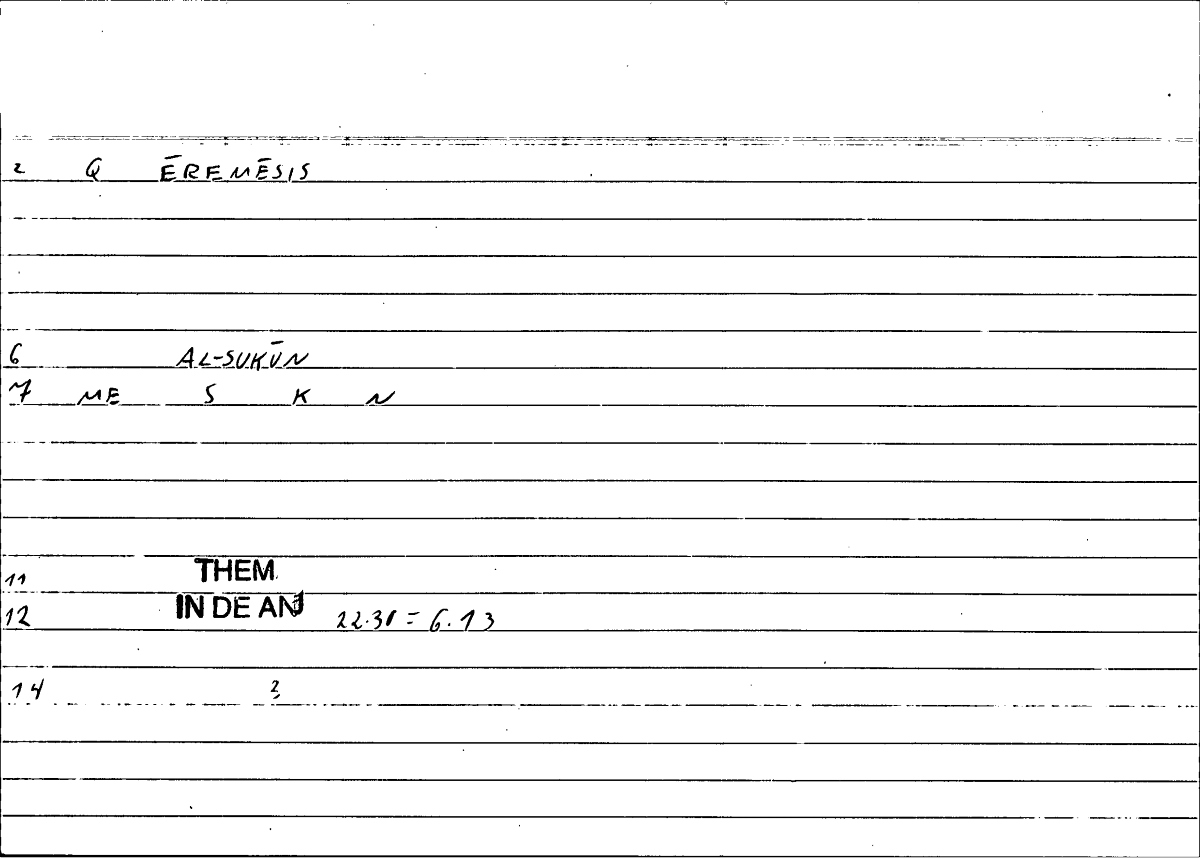 2 Q ĒREMĒSIS
6 AL-SUKŪN
7 ME S K N
11 THEM
12 IN DE AN 22.31 = 6.13
14 2